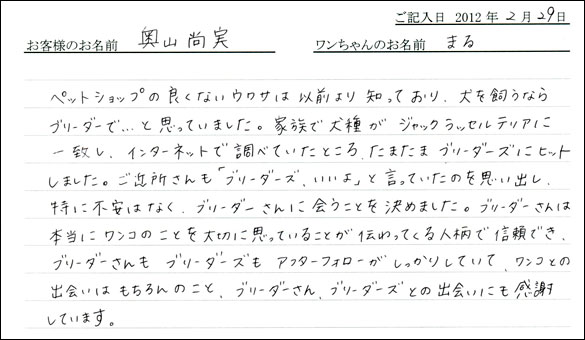 ご記入日 2012年2月29日
お客様のお名前 奥山尚実 ワンちゃんのお名前 まる
ペットショップの良くないウワサは以前より知っており、犬を飼うなら
ブリーダーで…と思っていました。家族で犬種がジャックラッセルテリアに
一致し、インターネットで調べていたところ、たまたまブリーダーズにヒット
しました。ご近所さんも「ブリーダーズ、いいよ」と言っていたのを思い出し、
特に不安はなく、ブリーダーさんに会うことを決めました。ブリーダーさんは
本当にワンコのことを大切に思っていることが伝わってくる人柄で信頼でき、
ブリーダーさんもブリーダーズもアフターフォローがしっかりしていて、ワンコとの
出会いはもちろんのこと、ブリーダーさん、ブリーダーズとの出会いにも感謝
しています。